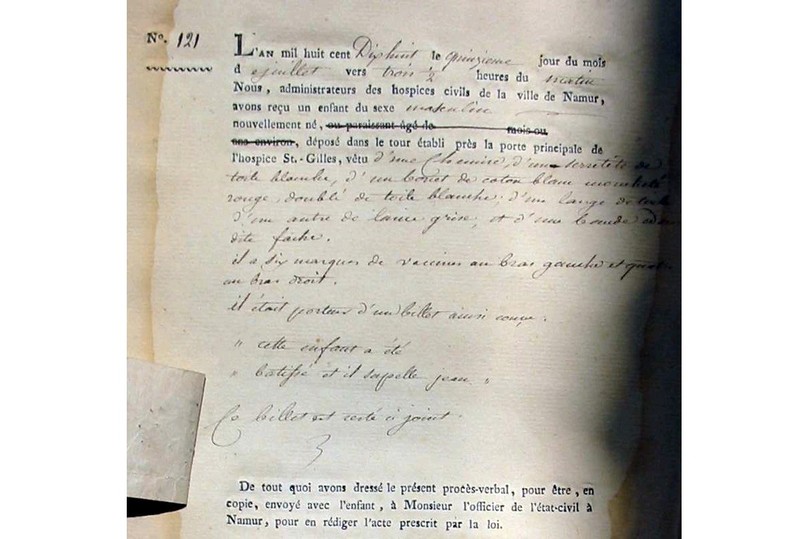 No. 121
L'AN mil huit cent Dix huit le quinzieme jour du mois
d juillet vers trois ½ heures du matin
Nous, administrateurs des hospices civils de la ville de Namur,
avons reçu un enfant du sexe masculin
nouvellement né, ou paraissant âgé de mois ou
ans environ, déposé dans le tour établi près la porte principale de
l'hospice St.-Gilles, vêtu d'une Chemise, d'une serviette de
toile blanche, d'un bonet de coton blanc moucheté
rouge, doublé de toile blanche, d'une lange de toile
d'un autre de laine grise, et d'une bande
dite fache.
il a six marques de vaccines au bras gauche et
au bras droit.
il était porteur d'un billet ainsi conçu.
" cette enfant a été
" batissé et il sapelle jean "
Ce billet est resté ci joint.
De tout quoi avons dressé le présent procès-verbal, pour être, en
copie, envoyé avec l'enfant, à Monsieur l'officier de l'état-civil à
Namur, pour en rédiger l'acte prescrit par la loi.